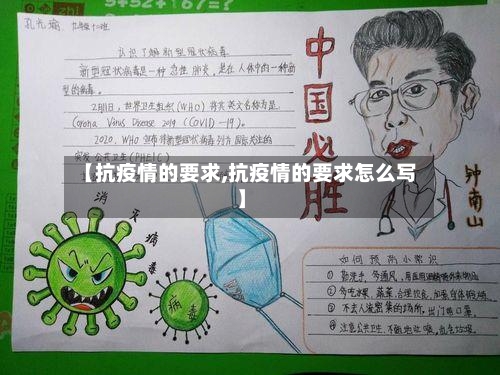 zhi
5+52+167=?
九年级十二班
认识了解新型冠状病毒
新型冠状病毒是一种急性肺炎，是在人体中的一种新
型的病毒。
2月11日，世界卫生组织(WHO)将其英文名称为是
Corona Virus Disease 2019 (COVID-19)。
2020，WHO宣布将新型冠状病毒列为国际关注的
突发公共卫生(PHEIC)
中国必胜
钟南山
【抗疫情的要求,抗疫情的要求怎么写
】
消灭病毒
病毒
如何预防小常识
①勤洗手，多通风，
②多吃水果、蔬菜，合理饮食，加强身体锻炼
③不去人流密集的场所，出门戴口罩。
④注意公共卫生，不随地吐痰，